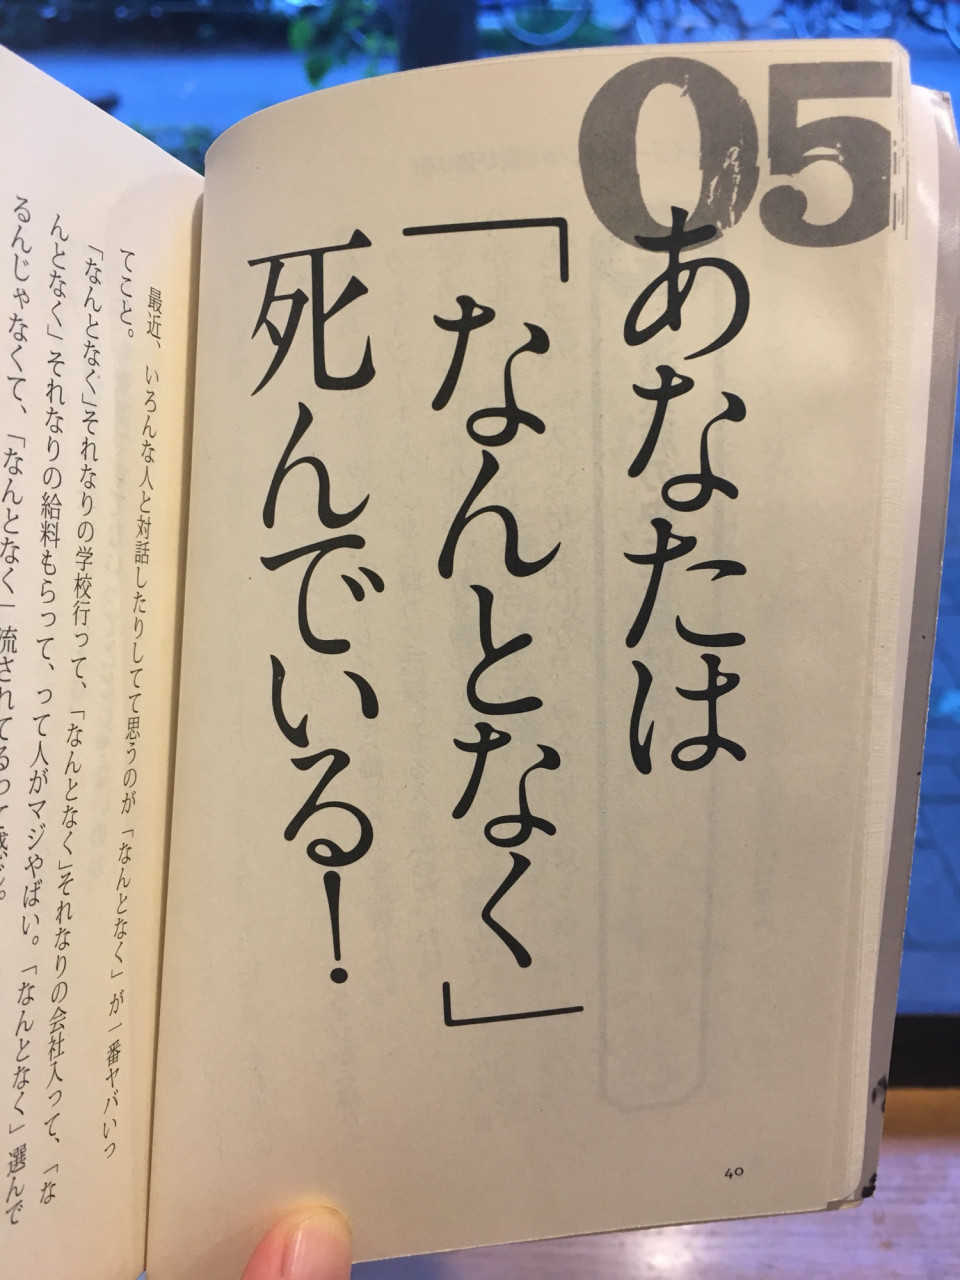 05
あなたは
「なんとなく」
死んでいる!
40
最近、いろんな人と対話したりしてて思うのが「なんとなく」が一番ヤバいっ
てこと。
「なんとなく」それなりの学校行って、「なんとなく」それなりの会社入って、「な
んとなく」それなりの給料もらって、って人がマジやばい。「なんとなく」選んで
るんじゃなくて、「なんとなく」流されてるって感じ。